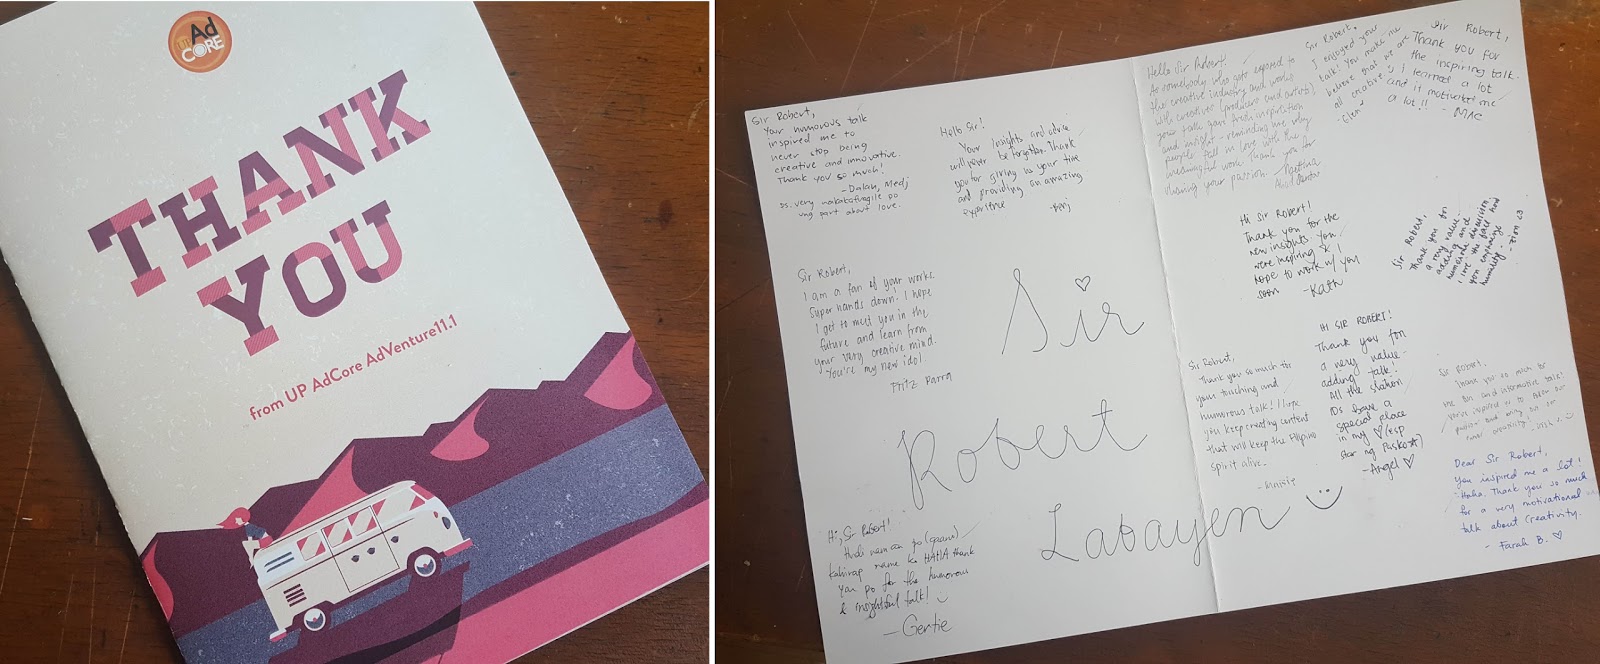 UP
Ad
CORE
THANK
YOU
from UP AdCore AdVenture11.1
Sir Robert,
Your humorous talk
inspired me to
never stop being
creative and innovative.
Thank you so much!
- Dalah, Medj
ps. very nakakafragile pa
ung part about love.
Hello Sir!
Your insights and advice
will never be forgotten. Thank
you for giving us your time
and providing an amazing
experience
Sir Robert,
I am a fan of your works
super hands down. I hope
I get to meet you in the
future and learn from
your very creative mind.
You're my new idol.
Fritz Parra
Sir
Robert
Labayen
Hi, Sir Robert!
kahirap name ko HAHA thank
you po for the humorous
& insightful talk!
- Gertie
Hello Sir Robert,
As somebody who gets exposed to
the creative industry and works
with creatives (producers and artists),
your talk gave fresh inspiration
and insight - reminding me why
people fall in love with the
meaningful work. Thank you for
sharing your passion.
Sir Robert,
I enjoyed your
talk! You make me
believe that we are
all creative :)
- Elen
Sir Robert,
Thank you for
the inspiring talk.
I learned a lot
and it motivated me
a lot!!
- MAC
Hi Sir Robert!
Thank you for the
new insights. You
were inspiring &
hope to work w/ you
soon
- Kath
Sir Robert,
Thank you for
a very value-
adding and
humorous discussion.
I love the fact how
you emphasize
humility.
- Zion <3
Sir Robert,
Thank you so much for
your touching and
humorous talk! I hope
you keep creating content
that will keep the Filipino
spirit alive.
- Maixie
HI SIR ROBERT!
Thank you for
a very value-
adding talk!
All the station
IDs have a
special place
in my ♡ (esp
Star ng Pasko☆)
- Angel ♡
Sir Robert,
Thank you so much for
the fun and informative talk!
You've inspired us to follow our
passion and bring out our
inner creativity.
Dear Sir Robert,
You inspired me a lot!
Haha. Thank you so much
for a very motivational
talk about creativity.
- Farah B. ♡